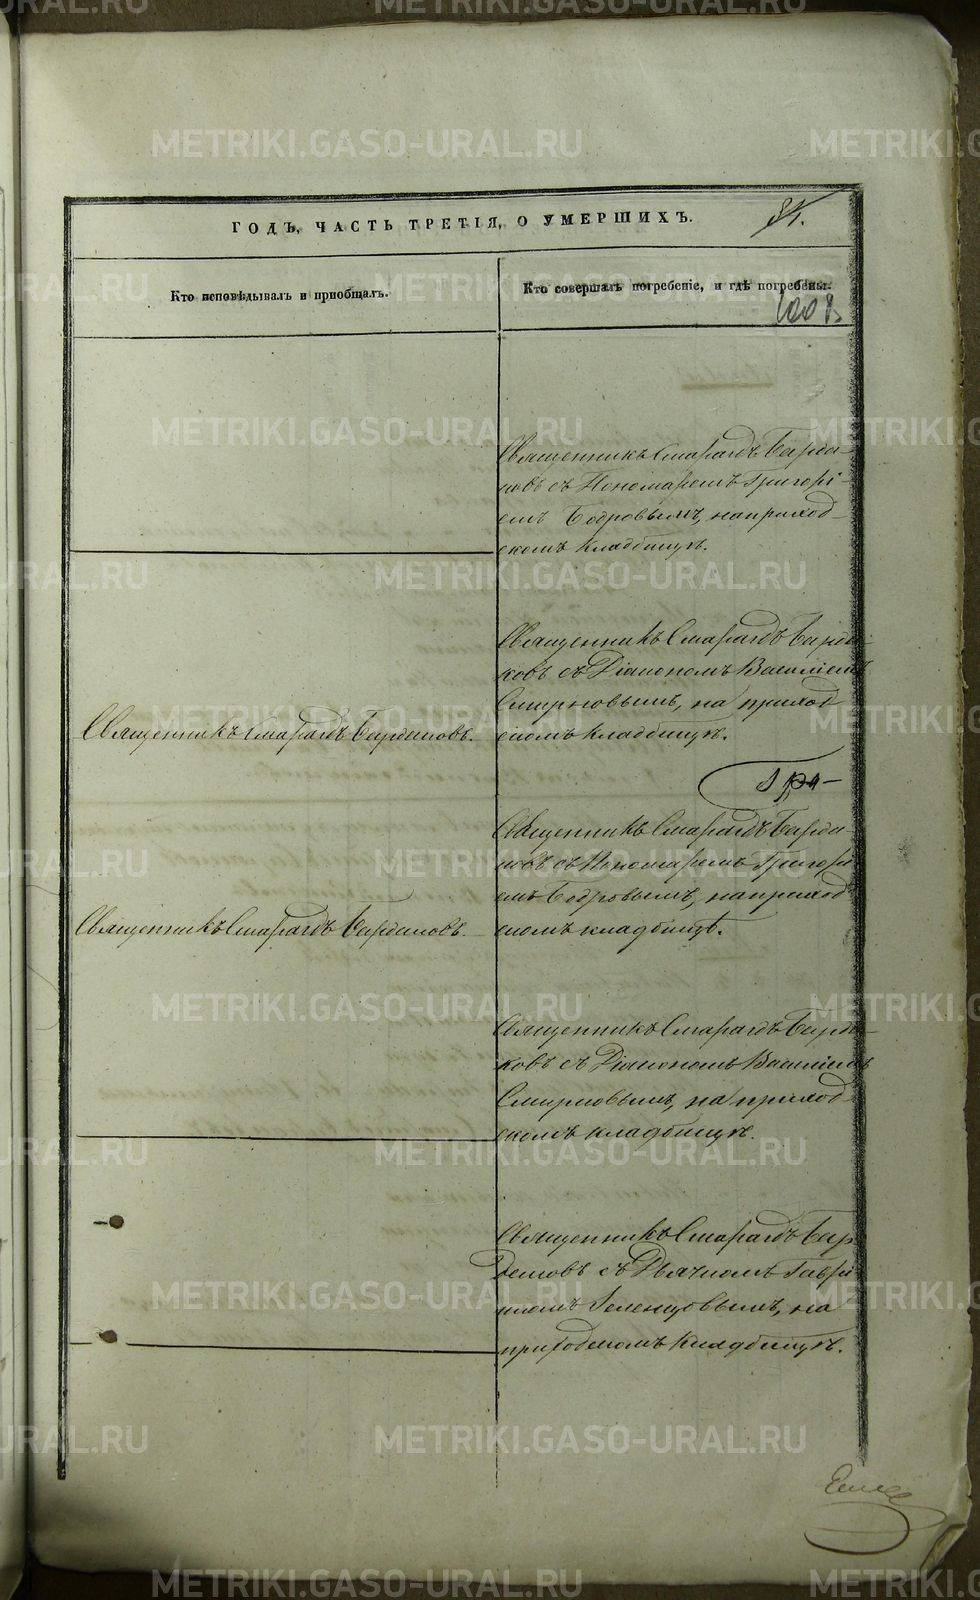 METRIKI.GASO-URAL.RU
ГОДЪ, ЧАСТЬ ТРЕТІЯ, О УМЕРШИХЪ.
Кто исповѣдывалъ и пріобщалъ.
Кто совершалъ погребеніе, и гдѣ погребены.
Священникъ Смарагдъ Бирда-
ковъ съ Пономаремъ Григорі-
емъ Бодровымъ, на приход-
скомъ кладбищѣ.
Священникъ Смарагдъ Бирдаковъ.
Священникъ Смарагдъ Бирда-
ковъ съ Діакономъ Василіемъ
Смирновымъ, на приход
скомъ кладбищѣ.
Гри-
Священникъ Смарагдъ Бирдаковъ.
Священникъ Смарагдъ Бирда-
ковъ съ Пономаремъ Григорі
емъ Бодровымъ, на приход
скомъ кладбищѣ.
Священникъ Смарагдъ Бирда-
ковъ съ Діакономъ Василіемъ
Смирновымъ, на приход-
скомъ кладбищѣ.
Священникъ Смарагдъ Бир
даковъ съ Дьячкомъ Гаврі
иломъ Зеленцовымъ, на
приходскомъ кладбищѣ.